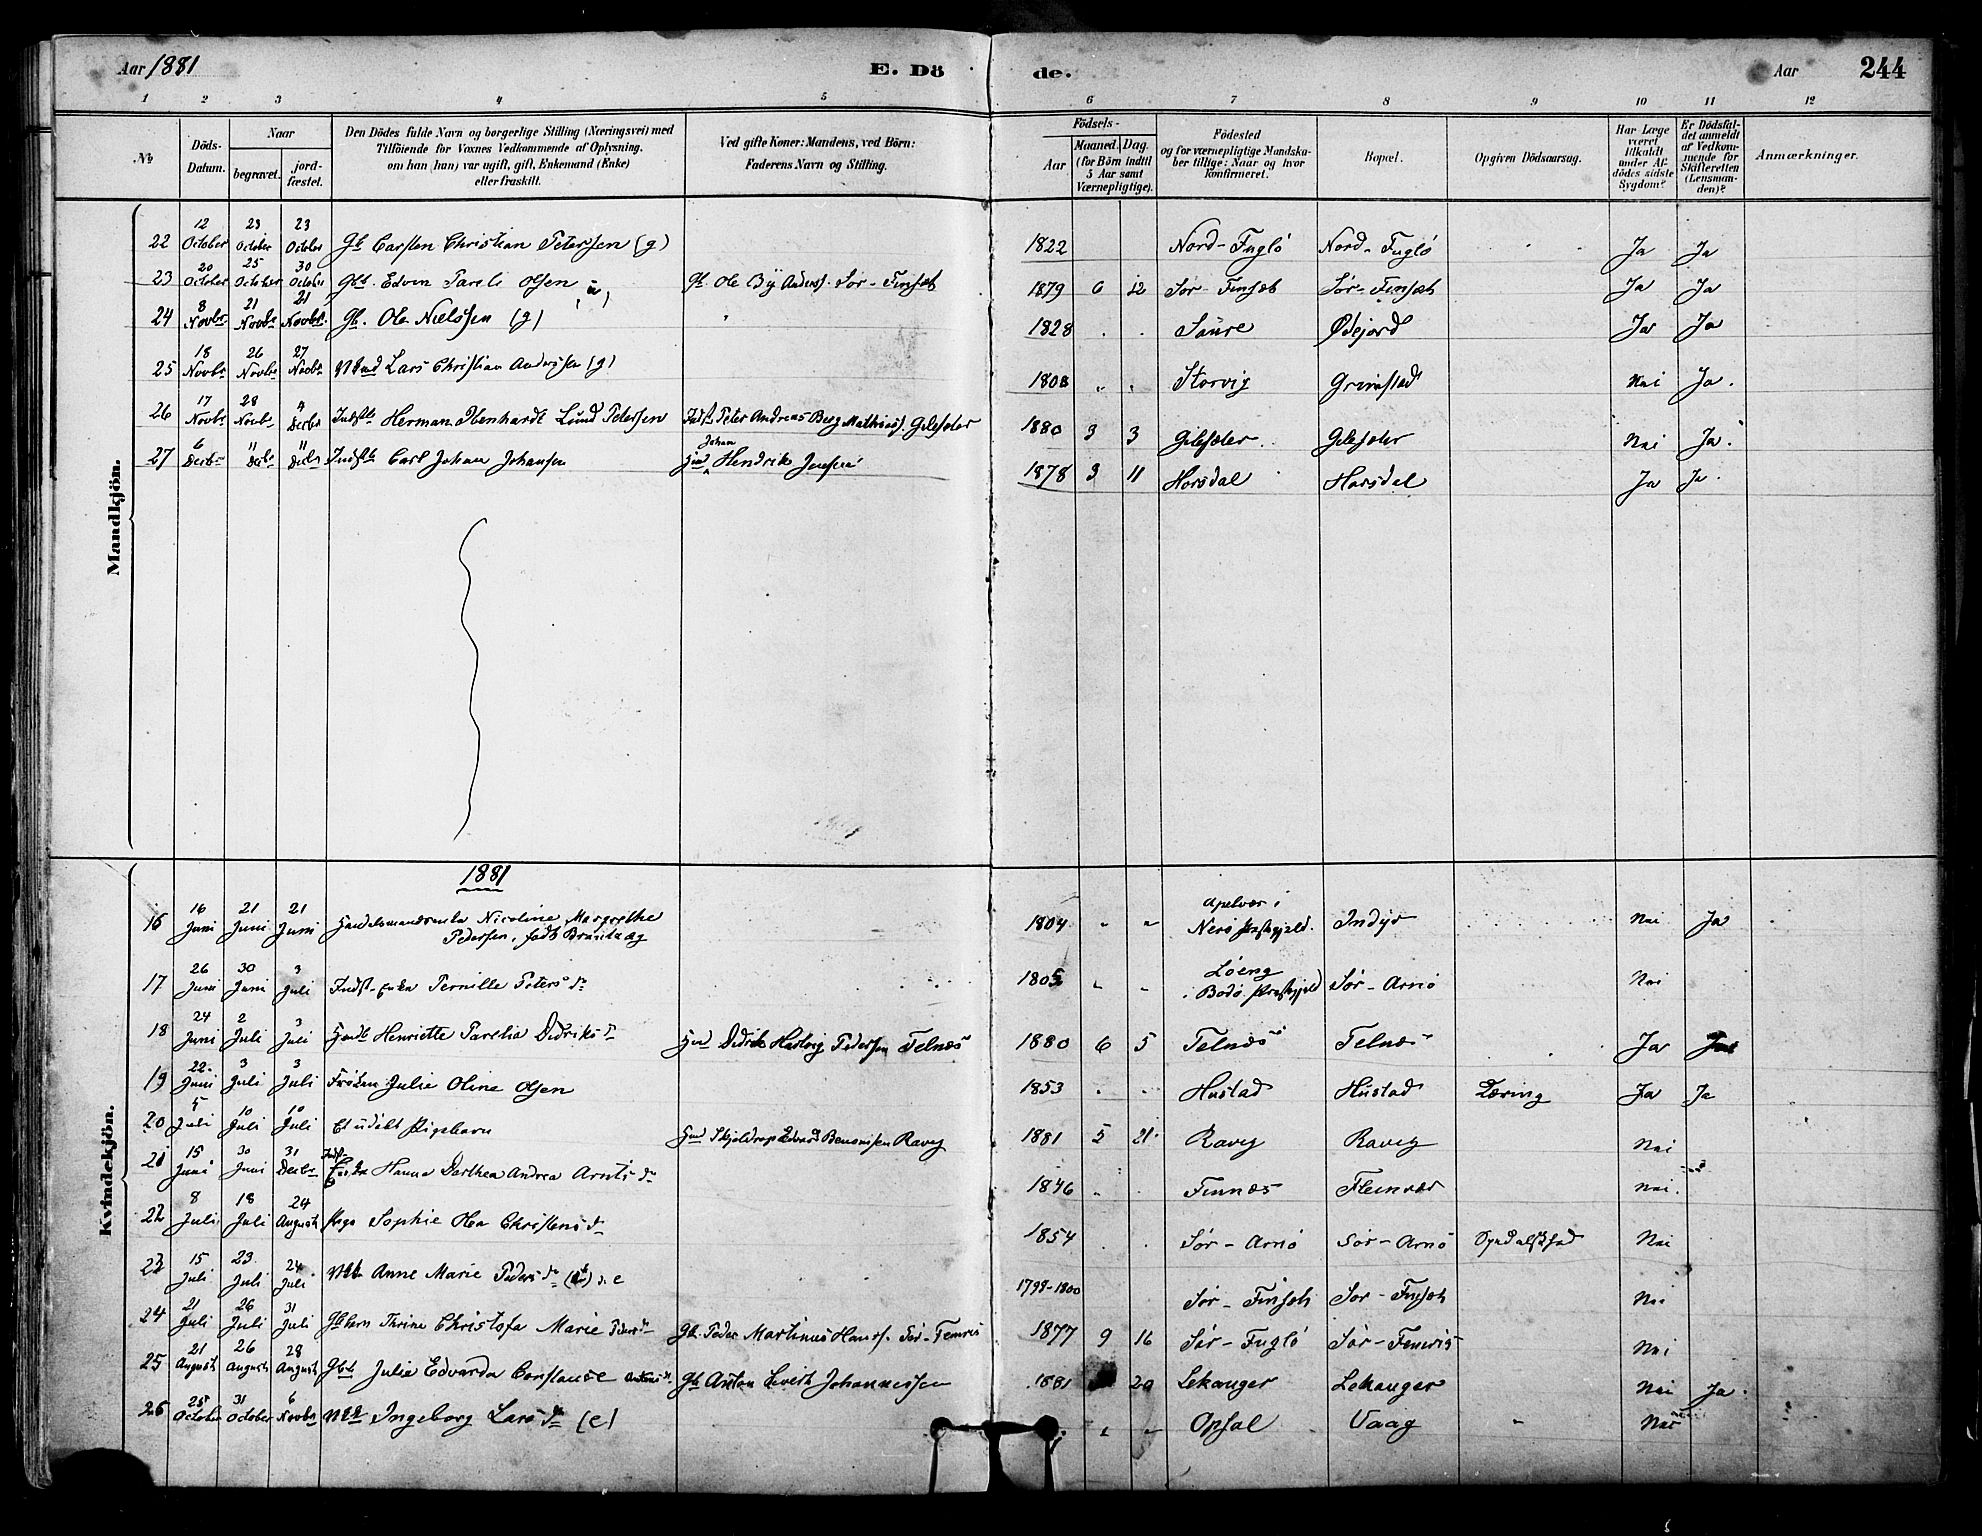 Aar 1881 E. Dö de. Aar 244
1 2 3 4 5 6 7 8 9 10 11 12
No
Döds-Datum.
Naar
begravet.
jord-fæstet.
Den Dödes fulde Navn og borgerlige Stilling (Næringsvei) med
Tilföiende for Voxnes Vedkommende af Oplysning,
om han (hun) var ugift, gift, Enkemand (Enke)
eller fraskilt.
Ved gifte Koner: Mandens, ved Börn:
Faderens Navn og Stilling.
Födsels-
Aar
Maaned. Dag.
(for Börn indtil
5 Aar samt
Værnepligtige).
Födested
og for værnepligtige Mandska-
ber tillige: Naar og hvor
konfirmeret.
Bopæl.
Opgiven Dödsaarsag.
Har Læge
været
tilkaldt
under Af-
dödes sidste
Sygdom?
Er Dödsfal-
det anmeldt
af Vedkom-
mende for
Skifteretten
(Lensman-
den)?
Anmærkninger.
Mandkjön.
22 12 October 23 October 23 October Gb Carsten Christian Petersen (g) 1822 Nord-Fuglö Nord-Fuglö Ja Ja
23 20 October 25 October 30 October Edvin Olsen Ole Sör-Finset 1879 6 12 Sör-Finset Sör-Finset Ja Ja
24 8 Novbr 21 Novbr 21 Novbr Gb. Ole Nielssen (g) 1828 Saure Ödejord Ja Ja
25 18 Novbr 26 Novbr 27 Novbr Lars Christian Anderssen (g) 1808 " " Storvig Grimstad Nei Ja.
26 17 Novbr 28 Novbr 4 Decbr Herman Lund Petersen Peter Andreas Berg Mathias. Gilesæter 1880 3 3 Gilesæter Gilesæter Nei Ja.
27 6 Decbr 11 Decbr 11 Decbr Carl Johan Johansen Johan Hendrik Jensen 1878 3 11 Horsdal Horsdal Ja Ja.
Kvindekjön.
1881
16 16 Juni 21 Juni 21 Juni Nicoline Margrethe
Pedersen, födt 1804 " " Apelvær i
Nerö Præstegjeld. Indyr Nei Ja
17 26 Juni 30 Juni 3 Juli Indst-Enke Pernille Petersdr 1805 " " Löeng
i Bodö Præstegjeld Sör-Arnö Nei
18 24 Juni 2 Juli 3 Juli Henriette Parelia Didriksdr Didrik Hartvig Pedersen Telnæs 1880 6 5 Telnæs Telnæs Ja Ja
19 22 Juni 3 Juli 3 Juli Fröken Julie Oline Olsen 1853 " " Hustad Hustad Tæring Ja Ja
20 5 Juli 10 Juli 10 Juli Et udöbt Pigebarn Edvard Ravig 1881 5 21 Ravig Ravig Nei
21 15 Juni 30 Juni 31 Decbr Indst Enke Hanna Dorthea Andrea Arntsdr 1846 " " Finnæs Fleinvær Nei.
22 8 Juli 18 Juli 24 August Pige Sophie Christensdr 1854 Sör-Arnö Sör-Arnö Nei
23 15 Juli 23 Juli 24 Juli Anne Marie Pedersdr 1798-1800 Sör-Finset Sör-Finset Nei
24 21 Juli 26 Juli 31 Juli Thrine Christofa Marie Pedersdr Gb. Peder Martinus Hans. 1877 9 16 Sör-Fuglö Nei
25 21 August 26 August 28 August Julie Edvarda Constanse Gb Anton Johannessen 1881 20 Lekanger Lekanger Nei Ja.
26 25 October 31 October 6 Novbr Ingeborg Larsdr (e) " " Opsal Vaag " Nei